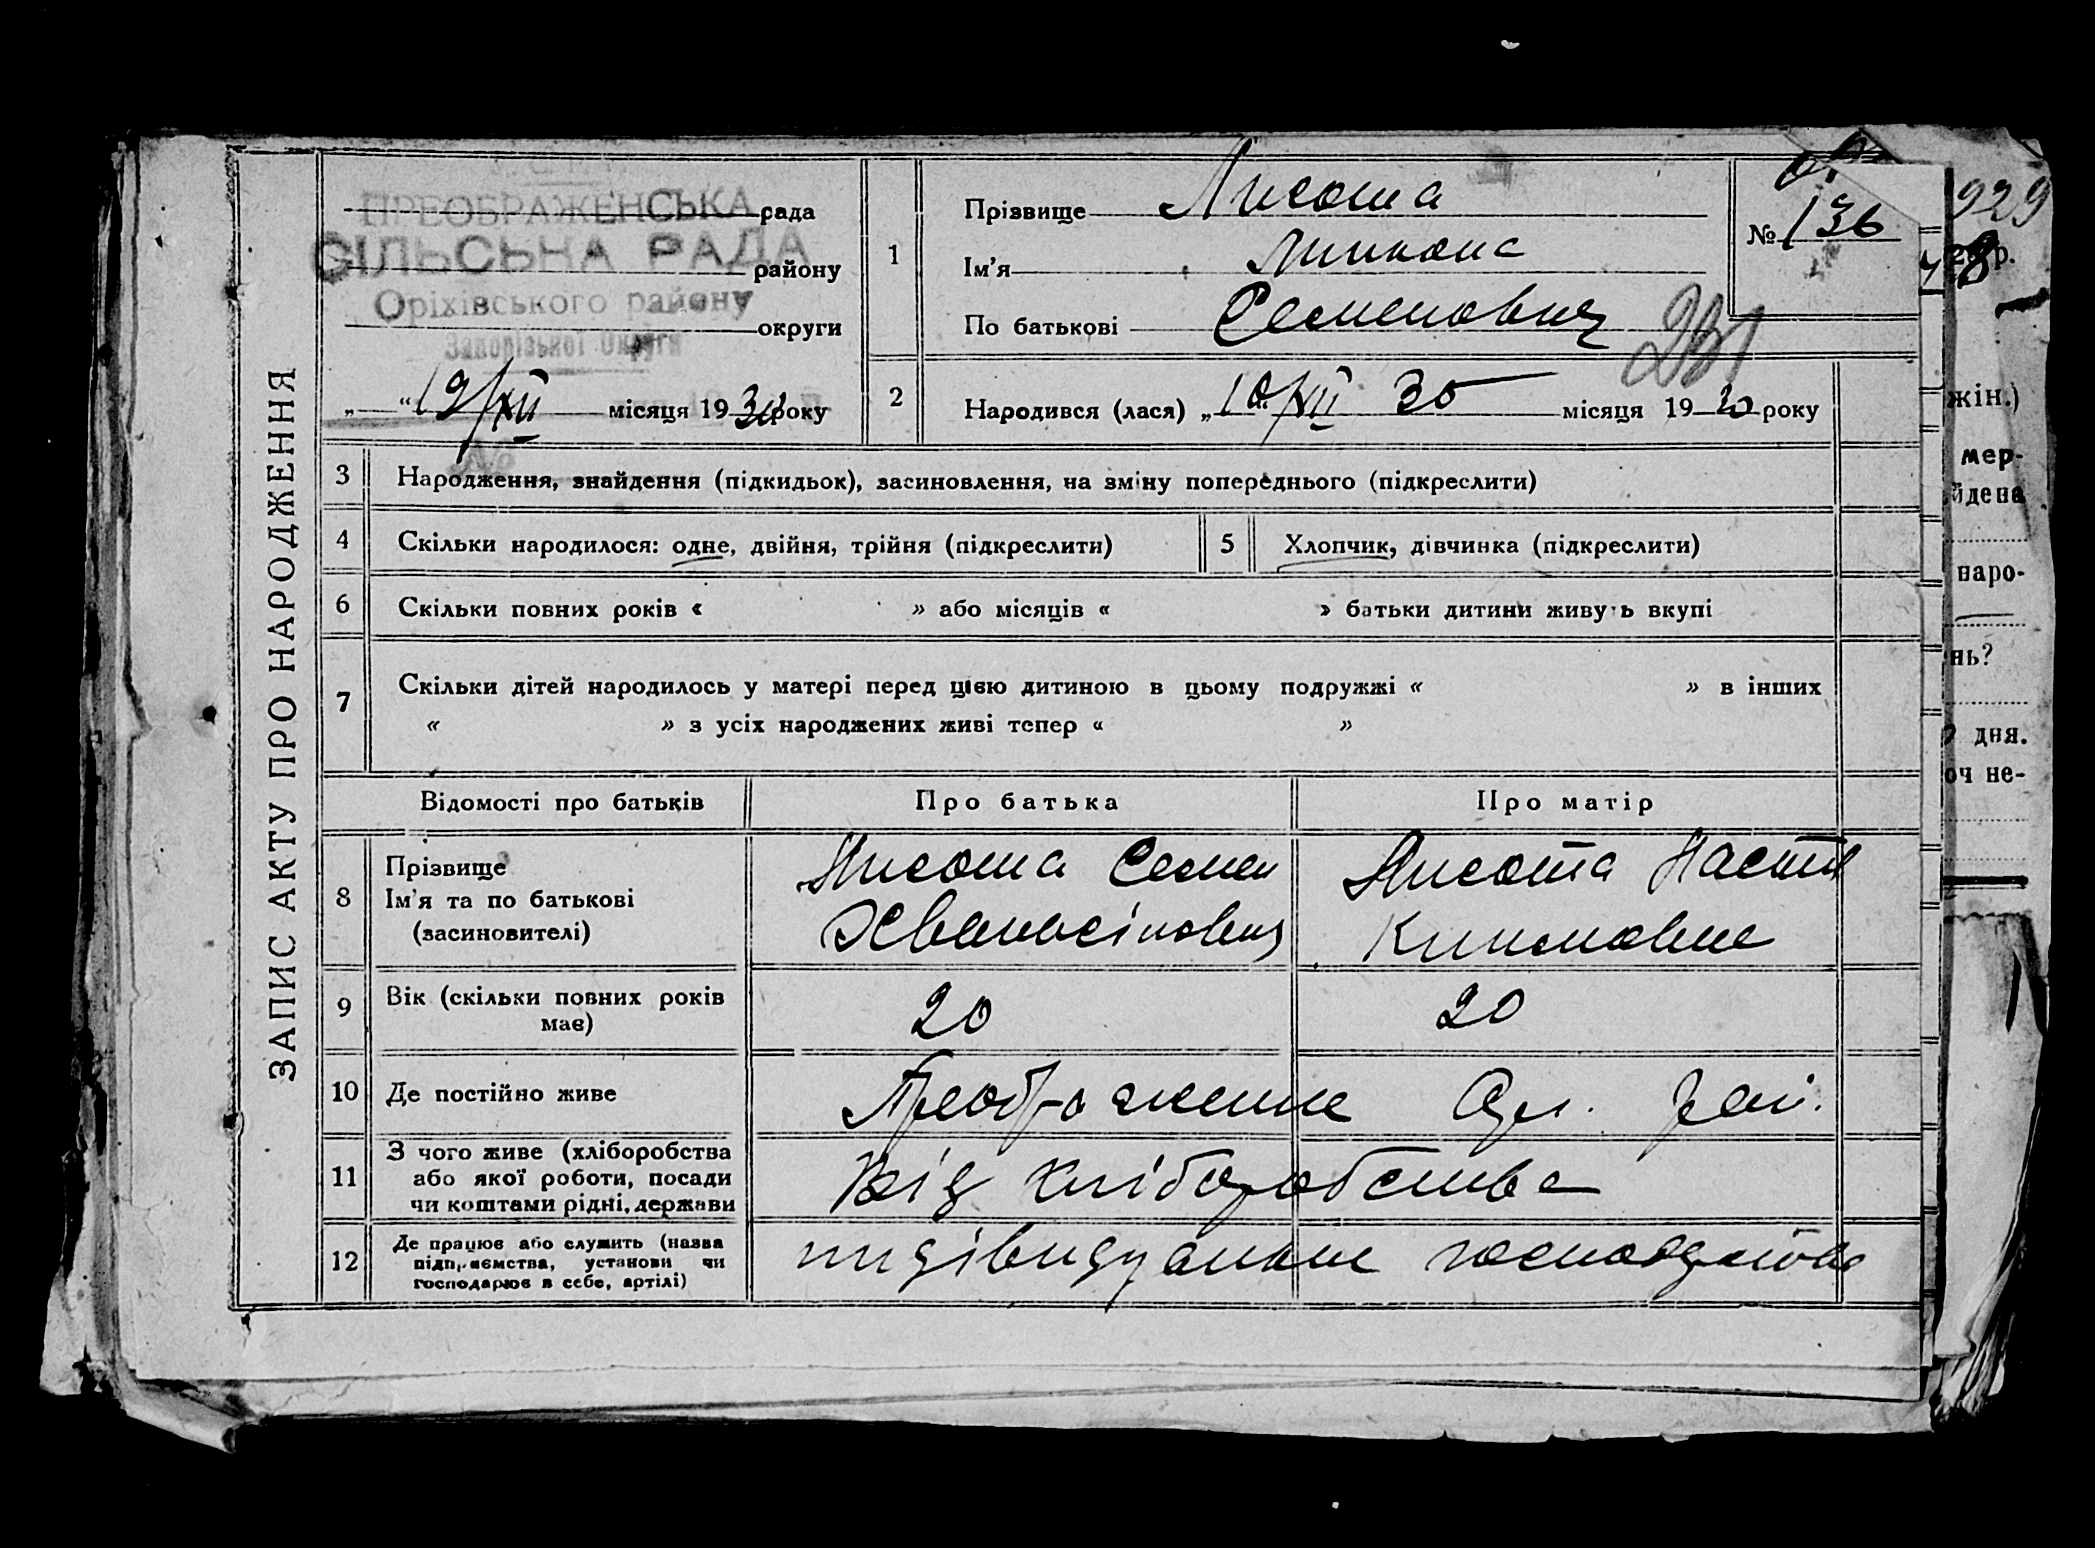 ЗАПИС АКТУ ПРО НАРОДЖЕННЯ
ПРЕОБРАЖЕНСЬКА рада
СІЛЬСЬКА РАДА
району
Оріхівського району
округи
Запорізької Округи
„ “ 19/XII місяця 1930 року
1
Прізвище Лисота
Ім'я Микола
По батькові Семенович
№ 136
231
2
Народився (лася) „ “ 10/XII 30 місяця 1930 року
3 Народження, знайдення (підкидьок), засиновлення, на зміну попереднього (підкреслити)
4 Скільки народилося: одне, двійня, трійня (підкреслити)
5 Хлопчик, дівчинка (підкреслити)
6 Скільки повних років « » або місяців « » батьки дитини живуть вкупі
7 Скільки дітей народилось у матері перед цією дитиною в цьому подружжі « » в інших
« » з усіх народжених живі тепер « »
Відомості про батьків Про батька Про матір
8 Прізвище
Ім'я та по батькові
(засиновителі)
Лисота Семен
Лисота Настя
9 Вік (скільки повних років
має)
20 20
10 Де постійно живе
Преображенне рай.
11 З чого живе (хліборобства
або якої роботи, посади
чи коштами рідні, держави
Від хліборобства
12 Де працює або служить (назва
підприємства, установи чи
господарює в себе, артілі)
929
р.
жін.)
мер-
йдена
наро-
нь?
дня.
оч не-